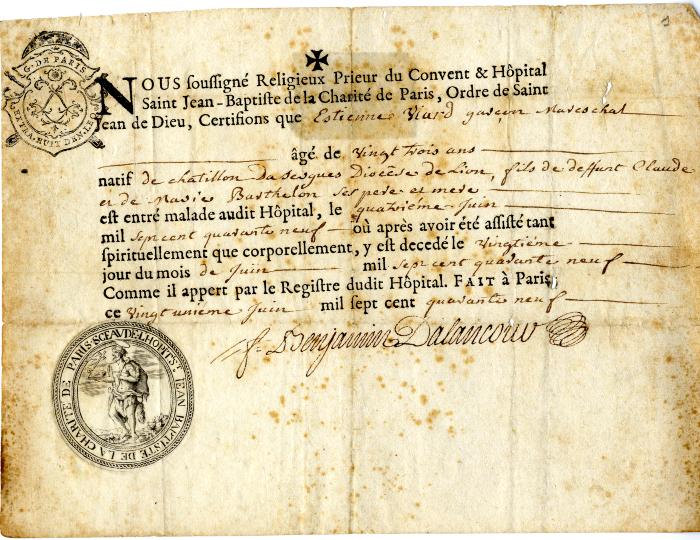 G. DE PARIS
EXTRA. HUIT DEN. LE Q.
NOUS soussigné Religieux Prieur du Convent & Hôpital
Saint Jean-Baptiste de la Charité de Paris, Ordre de Saint
Jean de Dieu, Certifions que Estienne Viard garçon Mareschal
âgé de Vingt trois ans
natif de chatillon Dasesgues Diocèse de Lion, fils de deffunt Claude
et de Marie Barthelon Ses pere et mere
est entré malade audit Hôpital, le quatrième Juin
mil Sept cent quarante neuf où après avoir été assisté tant
spirituellement que corporellement, y est decedé le Vingtième
jour du mois de Juin mil Sept cent quarante neuf
Comme il appert par le Registre dudit Hôpital. FAIT à Paris,
ce Vingt unième Juin mil sept cent quarante neuf
f. Benjamin Dalancour
SCEAV DE L'HOPIT. ST. JEAN BAPTISTE DE LA CHARITE DE PARIS